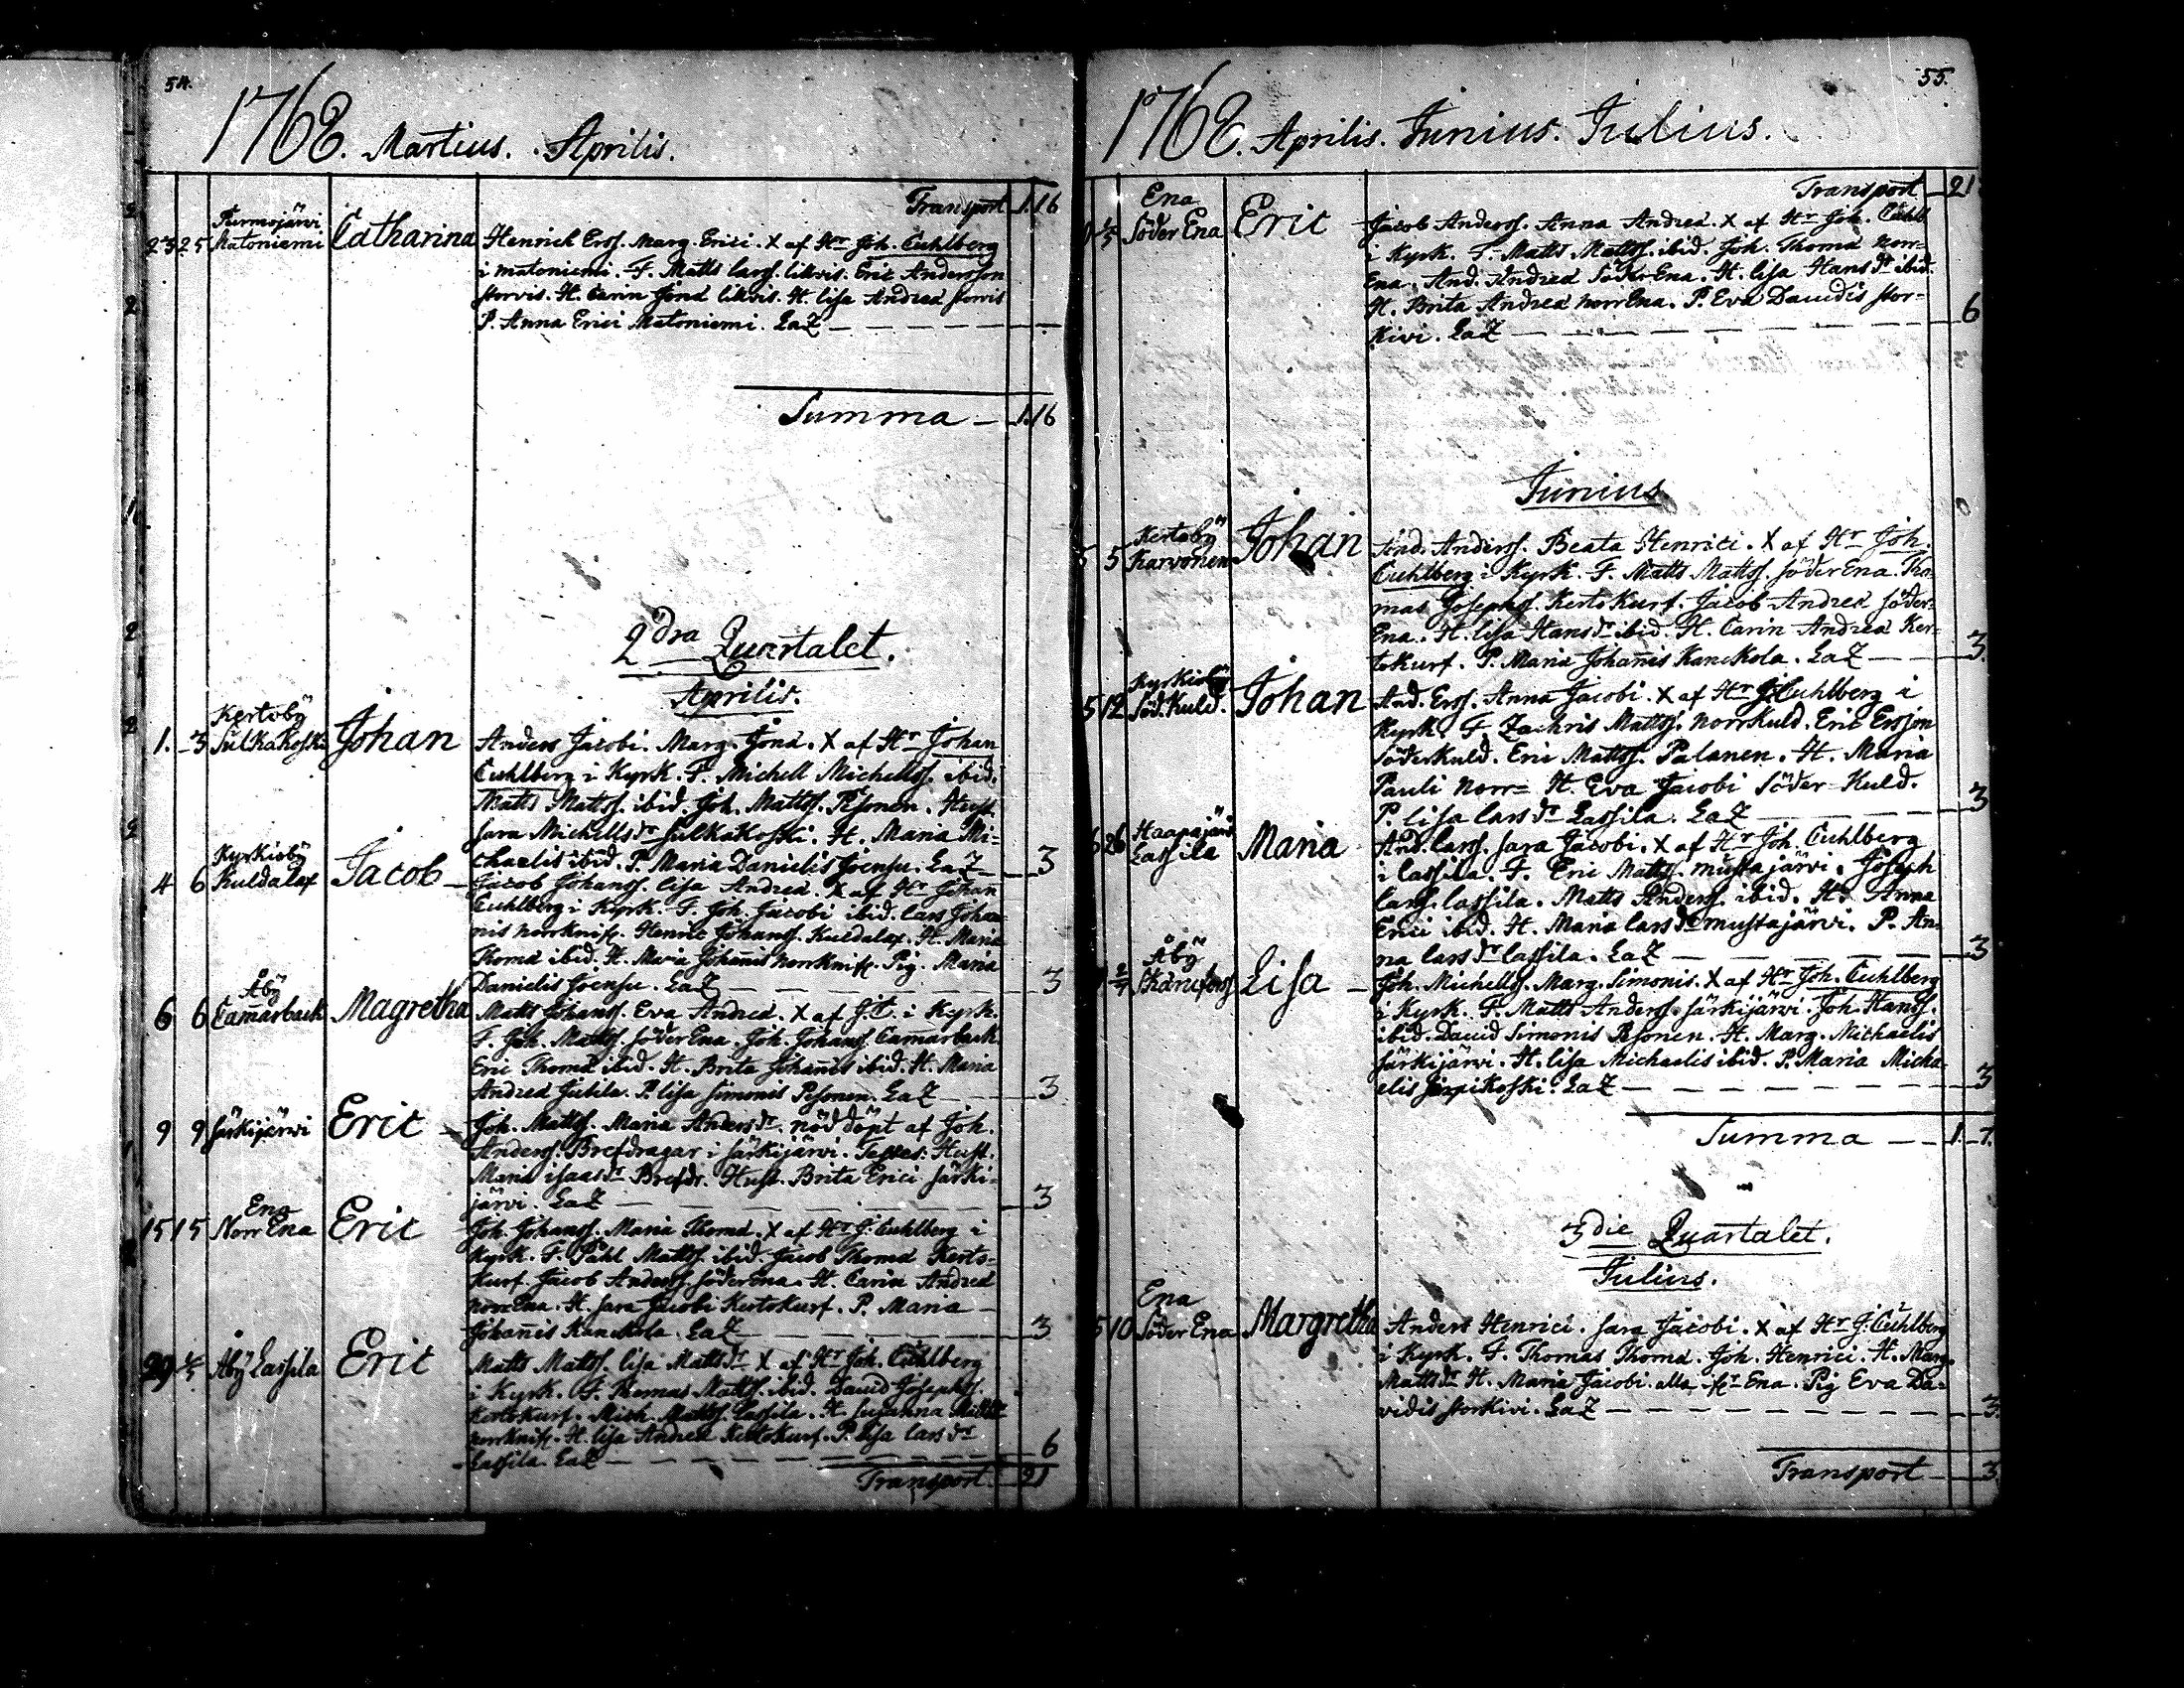 54.
1768. Martius. Aprilis.
Transport 1.16
Purmojärvi
23 25 Matoniemi Catharina Henrich Erss. Marg. Erici. X af Hr Joh. Cuhlberg
i matoniemi. F. Matts larss. lillvis. Eric Andersson
storvis. H. Carin Jona lillvis. H. lisa Andreæ storvis
P. Anna Erici Matoniemi. EaZ
Summa 1.16
2dra Quartalet.
Aprilis.
Kertoby
1. 3 Sulkakoski Johan Anders Jacobi. Marg. Jonæ. X af Hr Johan
Cuhlberg i Kyrk. F. Michell Michellss. ibid.
Matts Mattss. ibid. Joh. Mattss. Pesonen. Hust.
Sara Michellsdr Sulkakoski. H. Maria Mi-
chaelis ibid. P. Maria Danielis Joensu. EaZ 3
Kyrkioby
4 6 Kuldalax Jacob Jacob Johanss. lisa Andreæ. X af Hr Johan
Cuhlberg i Kyrk. F. Joh. Jacobi ibid. lars Johan-
nis norrknif. Henric Johanss. Kuldalax. H. Maria
Thomæ ibid. H. Maria Johannis norrknif. Pig. Maria
Danielis Joensu. EaZ 3
Åby
6 6 Camarback Magretha Matts Johanss. Eva Andreæ. X af J.C. i Kyrk.
F. Joh. Mattss. Söder Ena. Joh. Johanss. Camarback.
Eric Thomæ ibid. H. Brita Johannis ibid. H. Maria
Andreæ Jutila. P. lisa Simonis Pesonen. EaZ 3
9 9 Särkijärvi Eric Joh. Mattss. Maria Andersdr. nöddöpt af Joh.
Anderss. Brefdragar i Särkijärvi. Testes: Hust.
Maria isaacsdr Brefdr. Hust. Brita Erici Särki-
järvi. EaZ 3
Ena
15 15 Norr Ena Eric Joh. Johanss. Maria Thomæ. X af Hr J. Cuhlberg i
Kyrk. F. Påhl Mattss. ibid. Jacob Thomæ Kerto-
kurf. Jacob Anderss. Söder Ena. H. Carin Andreæ
norr Ena. H. Sara Jacobi Kertokurf. P. Maria
Johannis Kanckola. EaZ 3
29 Åby Lassila Eric Matts Mattss. lisa Mattsdr X af Hr Joh. Cuhlberg
i Kyrk. F. Thomas Mattss. ibid. David Josephss.
Kertokurf. Mich. Mattss. Lassila. H. Susanna
norrknif. H. lisa Andreæ Kertokurf. P. lisa larsdr
Lassila. EaZ 6
Transport 21
55.
1768. Aprilis. Junius. Julius.
Transport 21
Ena
Söder Ena Eric Jacob Anderss. Anna Andreæ. X af Hr Joh. Cuhlb
i Kyrk. F. Matts Mattss. ibid. Joh. Thomæ Norr-
Ena. And. Andreæ Söder Ena. H. lisa Hansdr ibid.
H. Brita Andreæ norr Ena. P. Eva Davidis stor-
Kivi. EaZ 6
Junius
Kertoby
5 5 Karvonen Johan And. Anderss. Beata Henrici. X af Hr Joh.
Cuhlberg i Kyrk. F. Matts Mattss. Söder Ena. Tho-
mas Josephss. Kertokurf. Jacob Andreæ Söder-
Ena. H. lisa Hansdr ibid. H. Carin Andreæ Ker-
tokurf. P. Maria Johannis Kanckola. EaZ 3.
Kyrkioby
5 12 Söd. Kuld. Johan And. Erss. Anna Jacobi. X af Hr J. Cuhlberg i
Kyrk. F. Zachris Mattss. norrkuld. Eric Ersson
Söderkuld. Eric Mattss. Palanen. H. Maria
Pauli Norr= H. Eva Jacobi Söder-Kuld.
P. lisa larsdr Lassila. EaZ 3
Haapajärvi
26 Lassila Maria And. larss. Sara Jacobi. X af Hr Joh. Cuhlberg
i lassila. F. Eric Mattss. mustajärvi. Joseph
larss. lassila. Matts Anderss. ibid. H. Anna
Erici ibid. H. Maria larsdr mustajärvi. P. An-
na larsdr lassila. EaZ 3
Åby
Lisa Joh. Michellss. Marg. Simonis. X af Hr Joh. Cuhlberg
i Kyrk. F. Matts Anderss. Särkijärvi. Joh. Hanss.
ibid. David Simonis Pesonen. H. Marg. Michaelis
Särkijärvi. H. lisa Michaelis ibid. P. Maria Micha-
elis Särpikoski. EaZ 3
Summa 1. 7.
3die Quartalet.
Julius.
Ena
5 10 Söder Ena Margretha Anders Henrici. Sara Jacobi. X af Hr J. Cuhlberg
i Kyrk. F. Thomas Thomæ. Joh. Henrici. H. Marg.
Mattsdr H. Maria Jacobi. alla ifr Ena. Pig Eva Da-
vidis storkivi. EaZ 3.
Transport 3